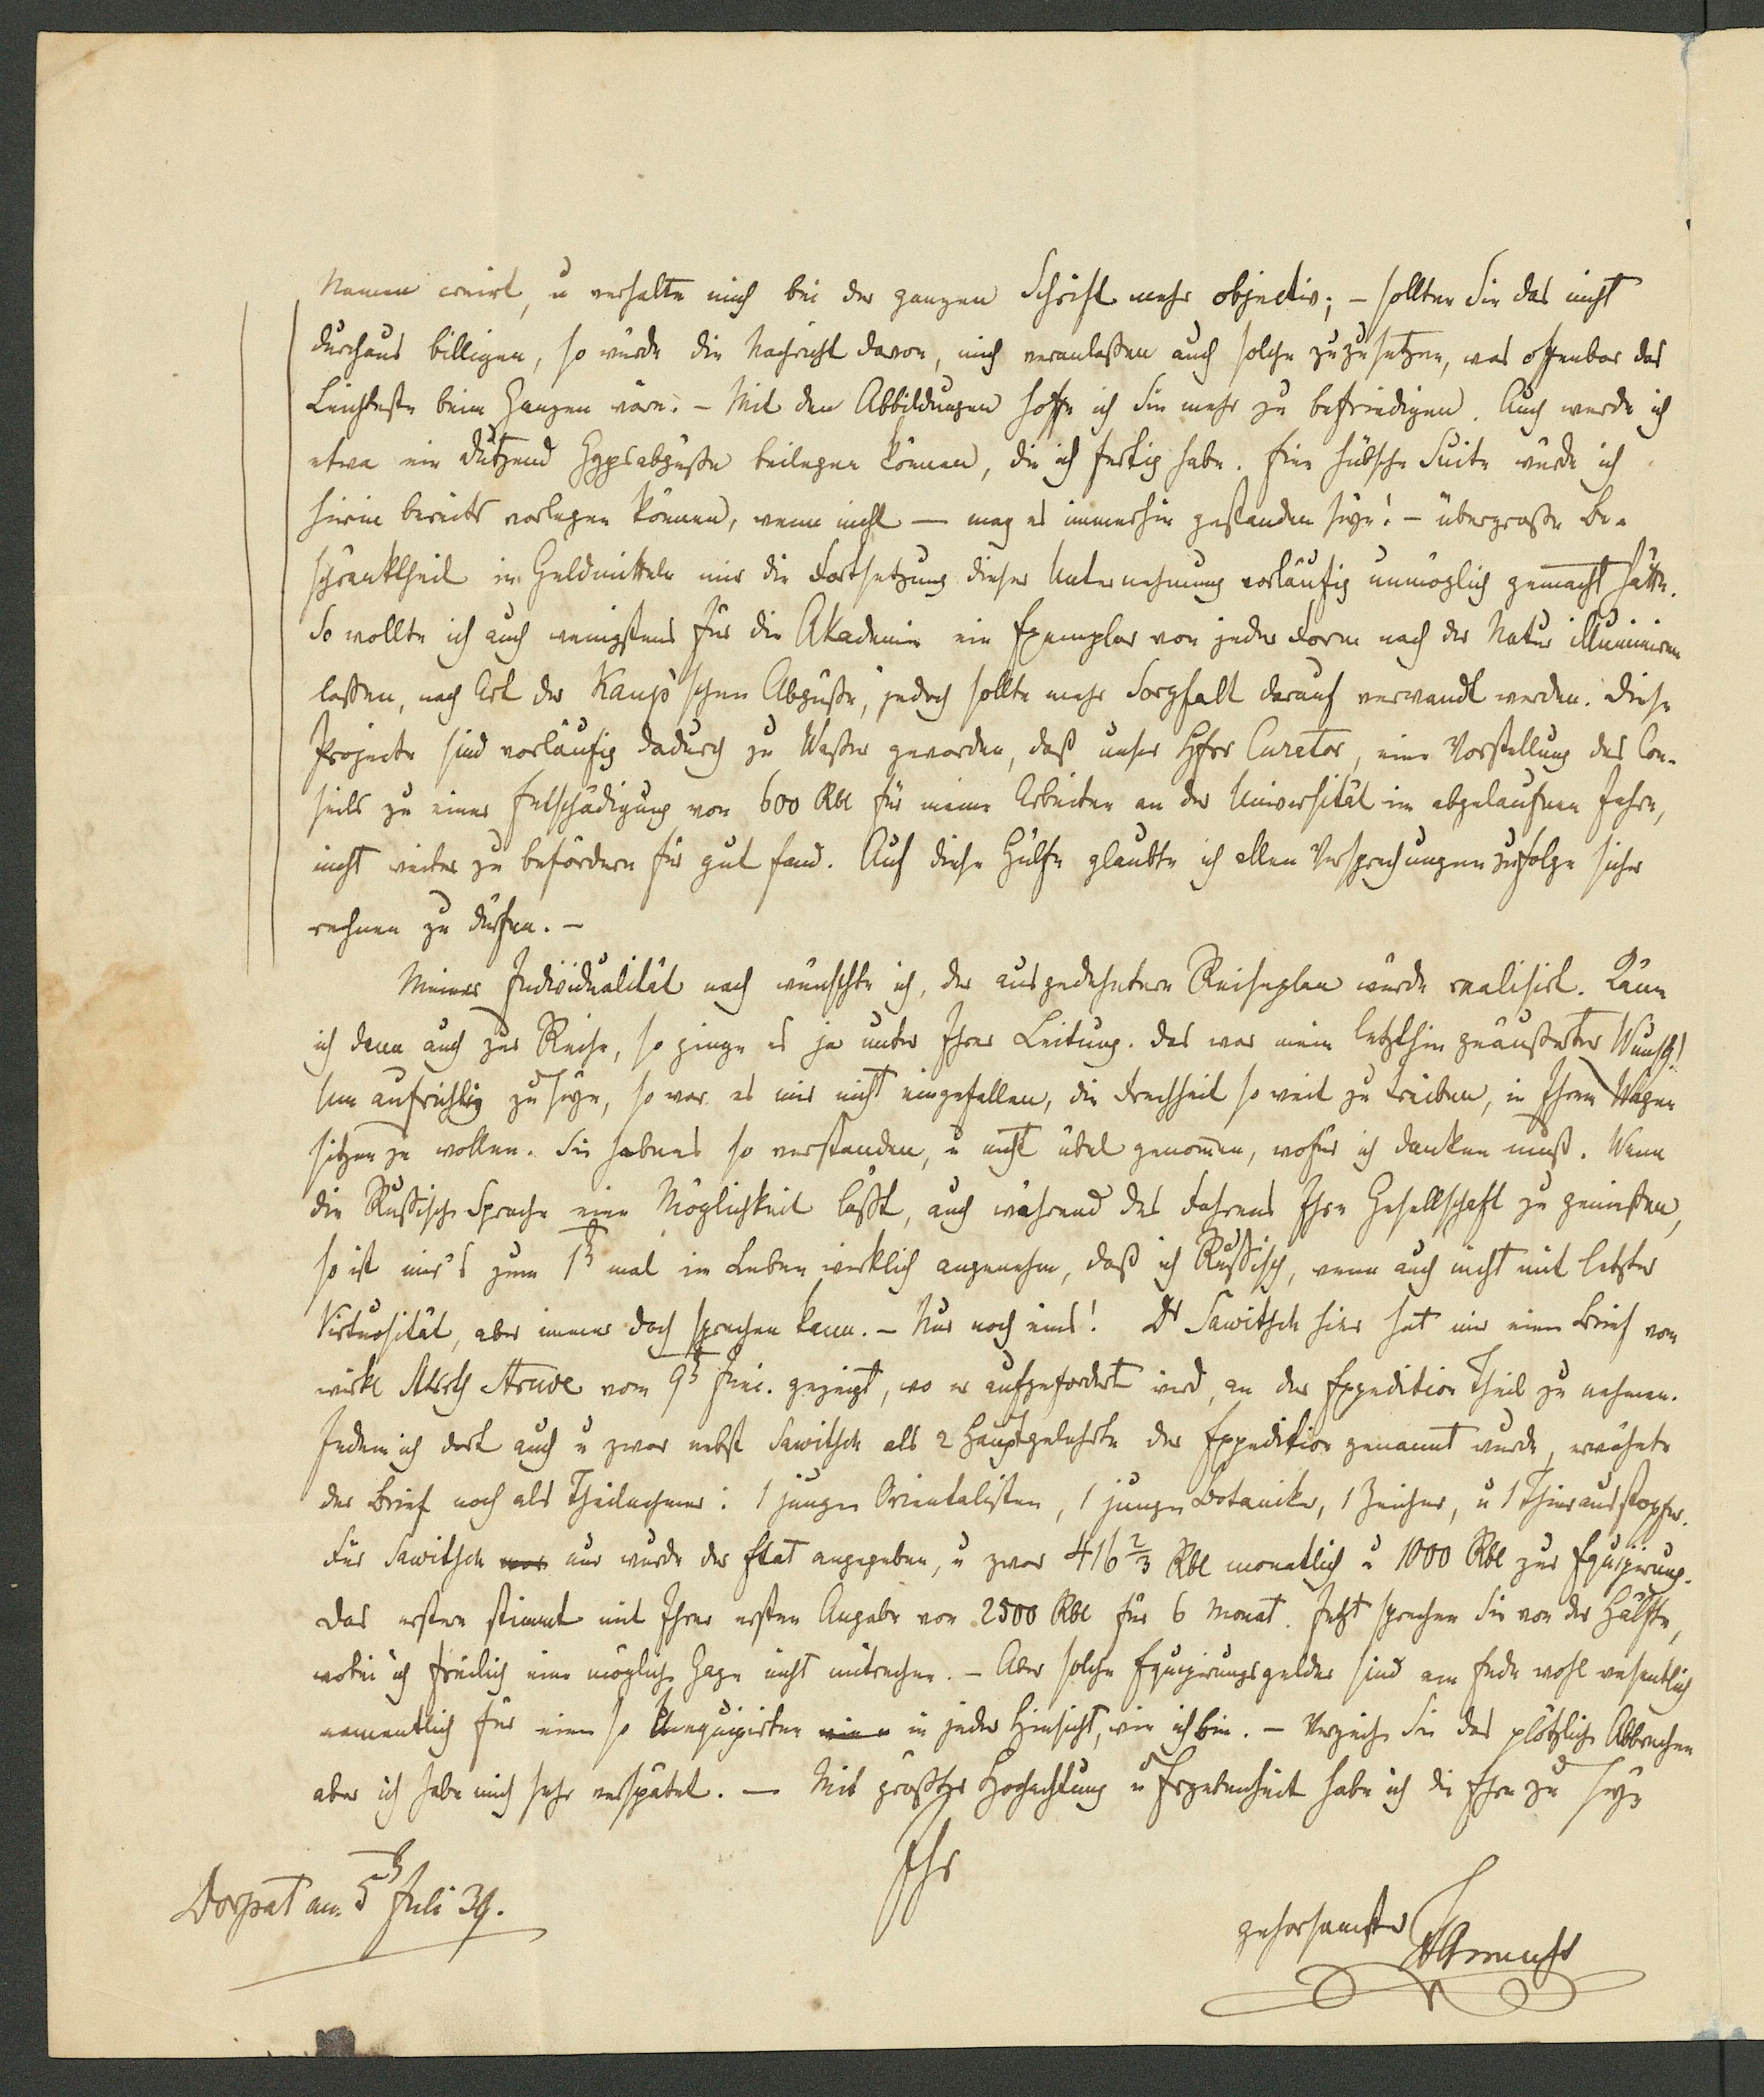 Namen creirt, u verhalte mich bei der ganzen Schrift mehr objectiv; – sollten Sie das nicht
durchaus billigen, so würde die Nachricht davon, mich veranlaßen auch solche zuzusetzen, was offenbar das
Leichteste beim Ganzen wäre. – Mit den Abbildungen hoffe ich Sie mehr zu befriedigen. Auch werde ich
etwa ein Dutzend Gypsabgüße beilegen können, die ich fertig habe. Eine hübsche Suite würde ich
hierin bereits vorlegen können, wenn nicht — mag es immerhin gestanden seyn! – übergroße Be-
schränktheit in Geldmitteln mir die Fortsetzung dieser Unternehmung vorläufig unmöglich gemacht hätte.
So wollte ich auch wenigstens für die Akademie ein Exemplar von jeder Form nach der Natur illuminiren
laßen, nach Art der Kaup'schen Abgüße, jedoch sollte mehr Sorgfalt darauf verwandt werden. Diese
Projecte sind vorläufig dadurch zu Waßer geworden, daß unser Curator, eine Vorstellung des Con-
seils zu einer Entschädigung von 600 Rbl für meine Arbeiten an der Universität im abgelaufnen Jahre,
nicht weiter zu befördern für gut fand. Auf diese Hülfe glaubte ich allen Versprechungen zufolge sicher
rechnen zu dürfen. –
Meiner Individualität nach wünschte ich, der ausgedehntere Reiseplan würde realisirt. Käme
ich dann auch zur Reise, so ginge es ja unter Ihrer Leitung. Das war mein letzthin geäußerter Wunsch!
Um aufrichtig zu seyn, so war es mir nicht eingefallen, die Frechheit so weit zu treiben, in Ihrem Wagen
sitzen zu wollen. Sie haben es so verstanden, u nicht übel genommen, wofür ich danken muß. Wenn
die Rußische Sprache eine Möglichkeit läßt, auch während des Fahrens Ihre Gesellschaft zu genießen,
so ist mir's zum 1st mal im Leben wirklich angenehm, daß ich Rußisch, wenn auch nicht mit letzter
Virtuosität, aber immer doch sprechen kann. – Nur noch eins! Dr Sawitsch hier hat mir einen Brief vom
wirkl Struve vom 9t Juni. gezeigt, wo er aufgefordert wird, an der Expedition Theil zu nehmen.
Indem ich dort auch u zwar nebst Sawitsch als 2 Hauptgelehrte der Expedition genannt wurde, erwähnte
der Brief noch als Theilnehmer: 1 jungen Orientalisten, 1 jungen Botaniker, 1 Zeichner, u 1 Thierausstopfer.
Für Sawitsch war nur wurde der Etat angegeben, u zwar 416 2/3 Rbl monatlich u 1000 Rbl zur Equipirung.
Das erstere stimmt mit Ihrer ersten Angabe von 2500 Rbl für 6 Monat. Jetzt sprechen Sie von der Hälfte,
wobei ich freilich eine mögliche Gage nicht mitrechne. – Aber solche Equipirungsgelder sind am Ende wohl wesentlich
namentlich für einen so Unequipirten wie in jeder Hinsicht, wie ich bin. – Verzeihen Sie das plötzliche Abbrechen
aber ich habe mich sehr verspätet. — Mit größter Hochachtung u Ergebenheit habe ich die Ehre zu seyn
Ihr
Dorpat am 5t Juli 39.
gehorsamster